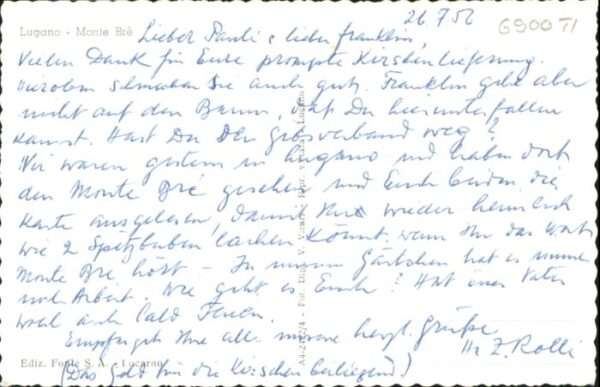 26.7.52
G900 TI
Lugano - Monte Brè
Lieber Pauli & lieber Franklin,
Vielen Dank für Eure prompte Kirschenlieferung.
Hieroben schmecken Sie auch gut. Franklin geht aber
nicht auf den Baum, dass Du herunterfallen
kannst. Hast Du Den Gipsverband weg?
Wir waren gestern in Lugano und haben dort
den Monte Brè gesehen und Euch beiden die
Karte ausgelesen, damit Ihr wieder heimlich
wie 2 Spitzbuben lachen könnt, wenn Ihr das Wort
Monte Brè hört - In unserm Gärtchen hat es immer
noch Arbeit. Wie geht es Euch? Hat euer Vater
wohl auch bald Ferien.
Empfangt Ihr alle unsere herzl. Grüsse
Z. Rolli
Ediz. Fonte S. A. - Locarno
(Das Geld für die Kirschen beiliegend)